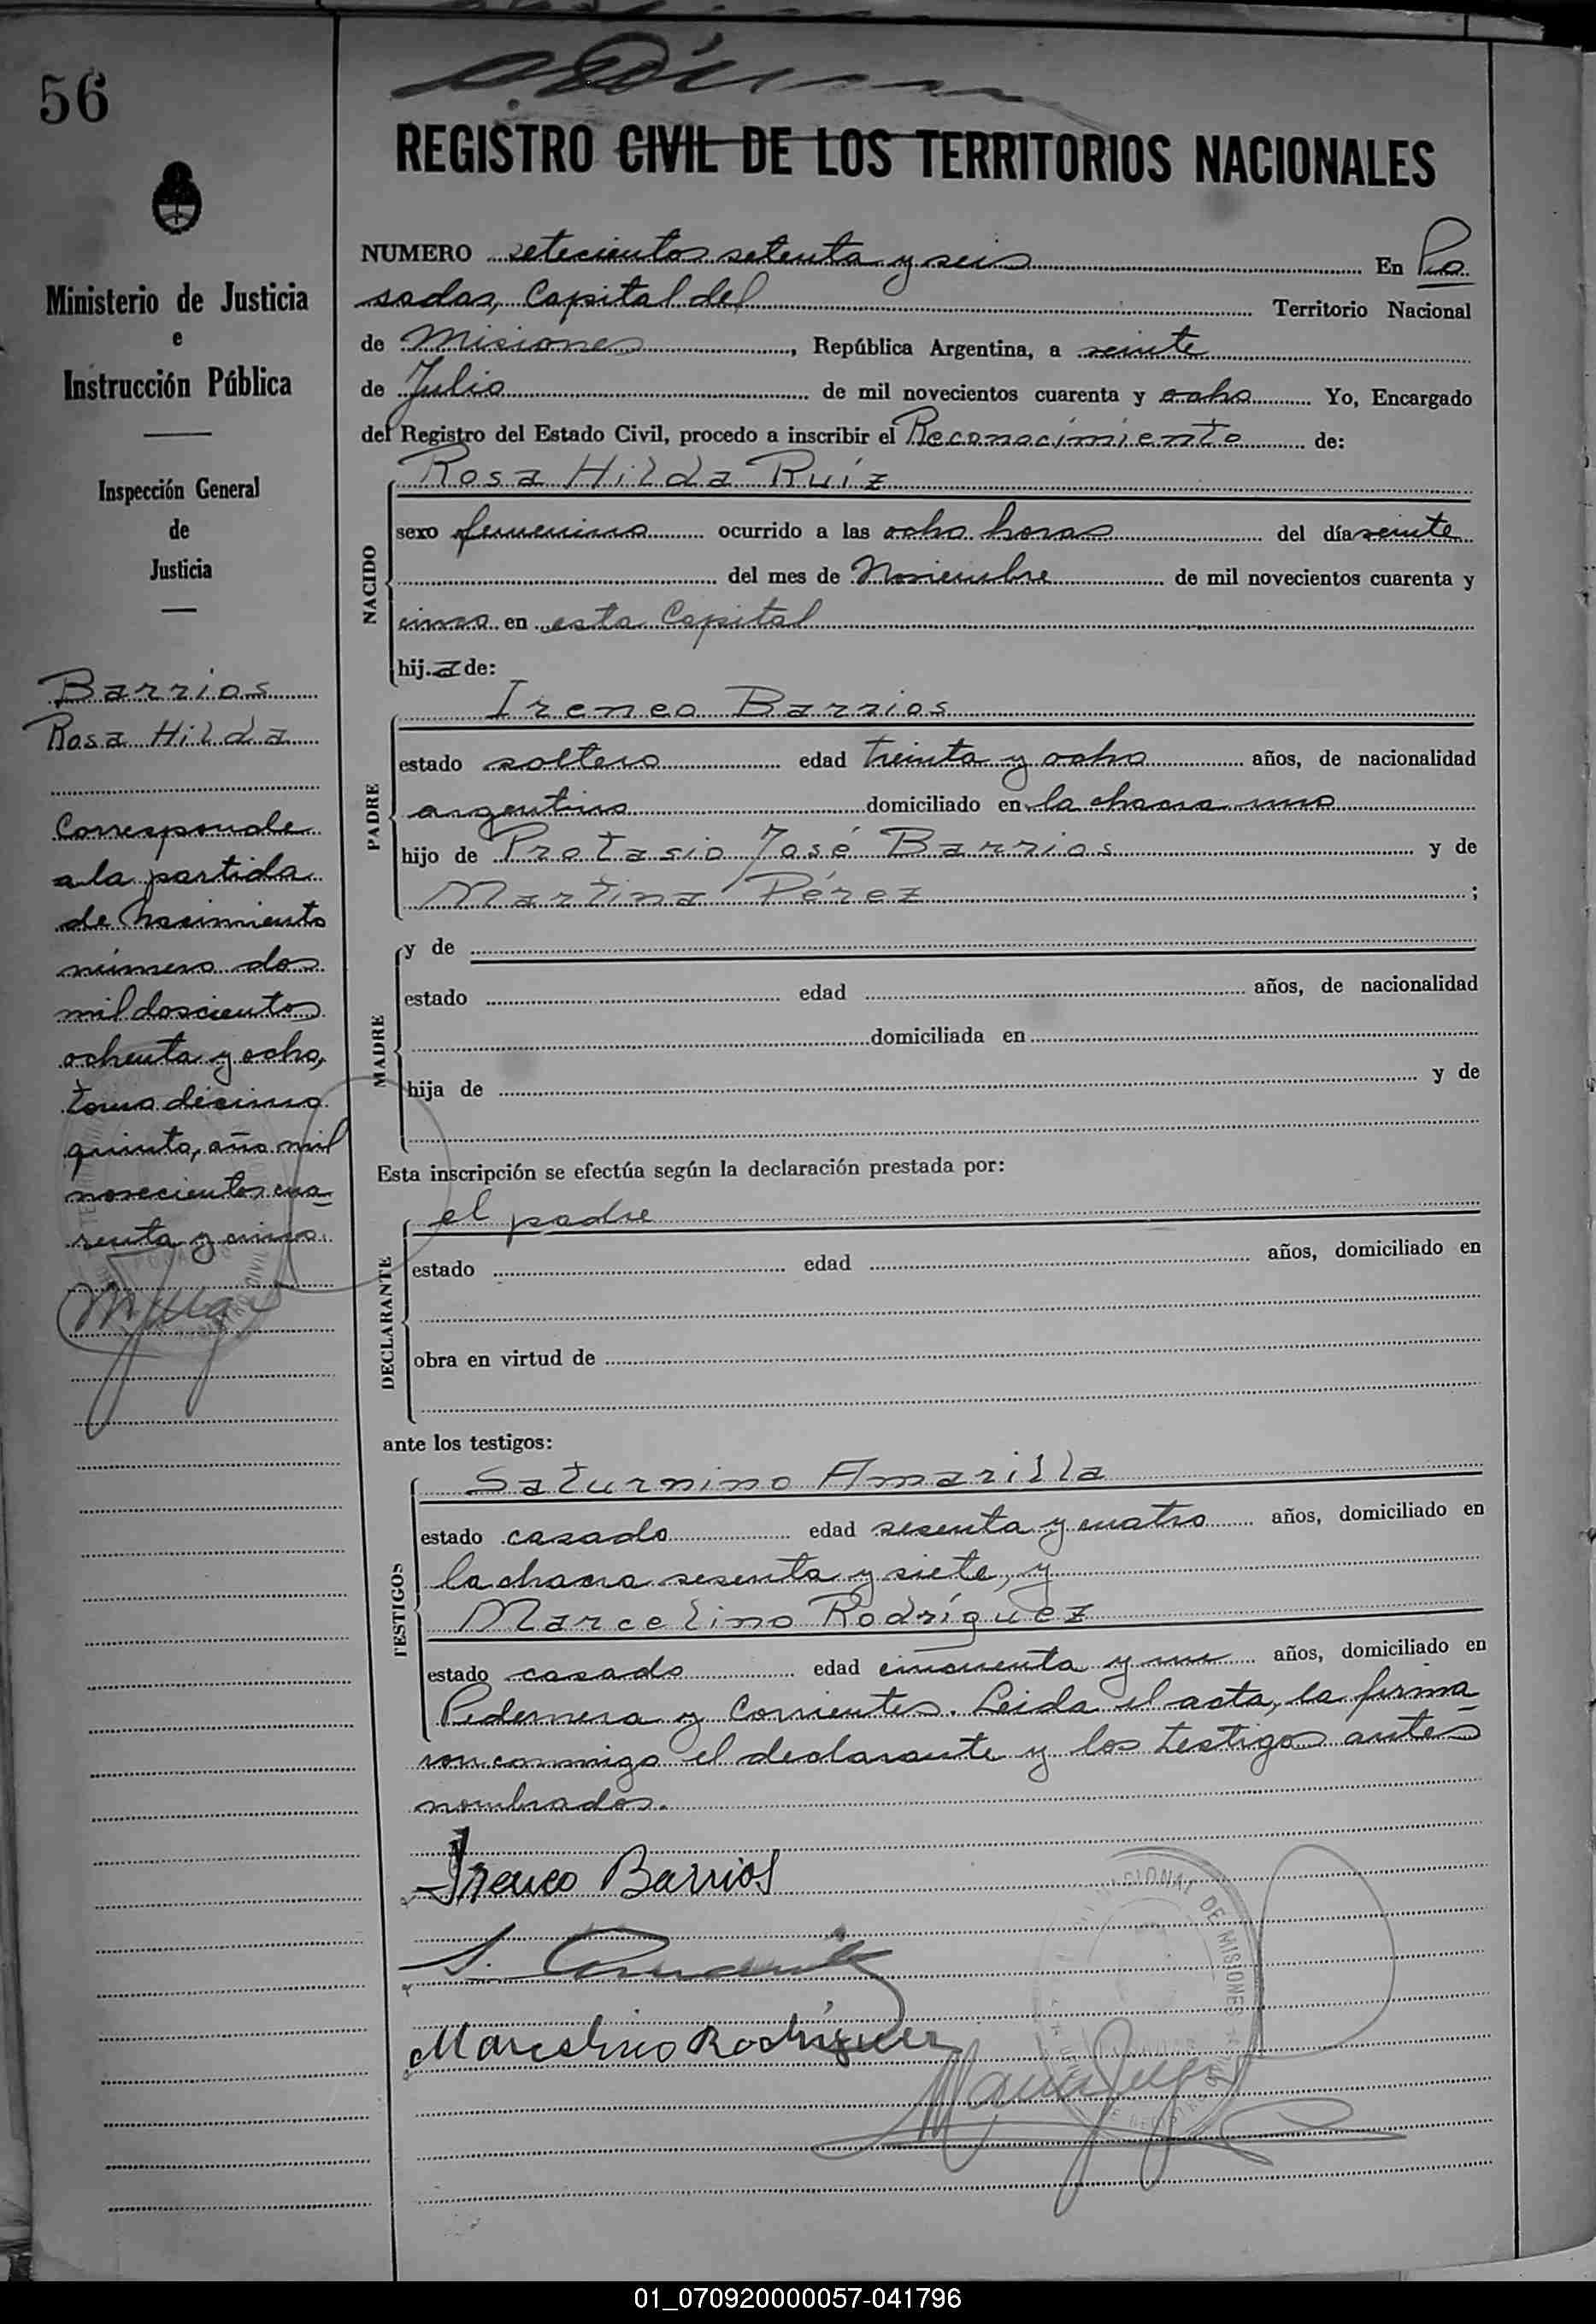 56
REGISTRO CIVIL DE LOS TERRITORIOS NACIONALES
Ministerio de Justicia
e
Instrucción Pública
Inspección General
de
Justicia
Barrios
Rosa Hilda
Corresponde
a la partida
de Nacimiento
número dos
mil doscientos
ochenta y ocho,
tomo décimo
quinto, año mil
novecientos cua-
renta y cinco.
NUMERO setecientos setenta y seis En Po
sadas, Capital del Territorio Nacional
de Misiones, República Argentina, a veinte
de Julio de mil novecientos cuarenta y ocho Yo, Encargado
del Registro del Estado Civil, procedo a inscribir el Reconocimiento de:
NACIDO
Rosa Hilda Ruíz
sexo femenino ocurrido a las ocho horas del día veinte
del mes de Noviembre de mil novecientos cuarenta y
cinco en esta Capital
hij a de:
PADRE
Ireneo Barrios
estado soltero edad treinta y ocho años, de nacionalidad
argentino domiciliado en la chacra uno
hijo de Protasio José Barrios y de
Martina Pérez ;
MADRE
y de
estado edad años, de nacionalidad
domiciliada en
hija de y de
Esta inscripción se efectúa según la declaración prestada por:
DECLARANTE
el padre
estado edad años, domiciliado en
obra en virtud de
ante los testigos:
TESTIGOS
Saturnino Amarilla
estado casado edad sesenta y cuatro años, domiciliado en
la chacra sesenta y siete, y
Marcelino Rodríguez
estado casado edad cincuenta y un años, domiciliado en
Pedernera y Corrientes. Leida el acta, la firma
ron conmigo el declarante y los testigos antes
nombrados.
Ireneo Barrios
S. Amarilla
Marcelino Rodríguez
DE MISIONES
01_070920000057-041796